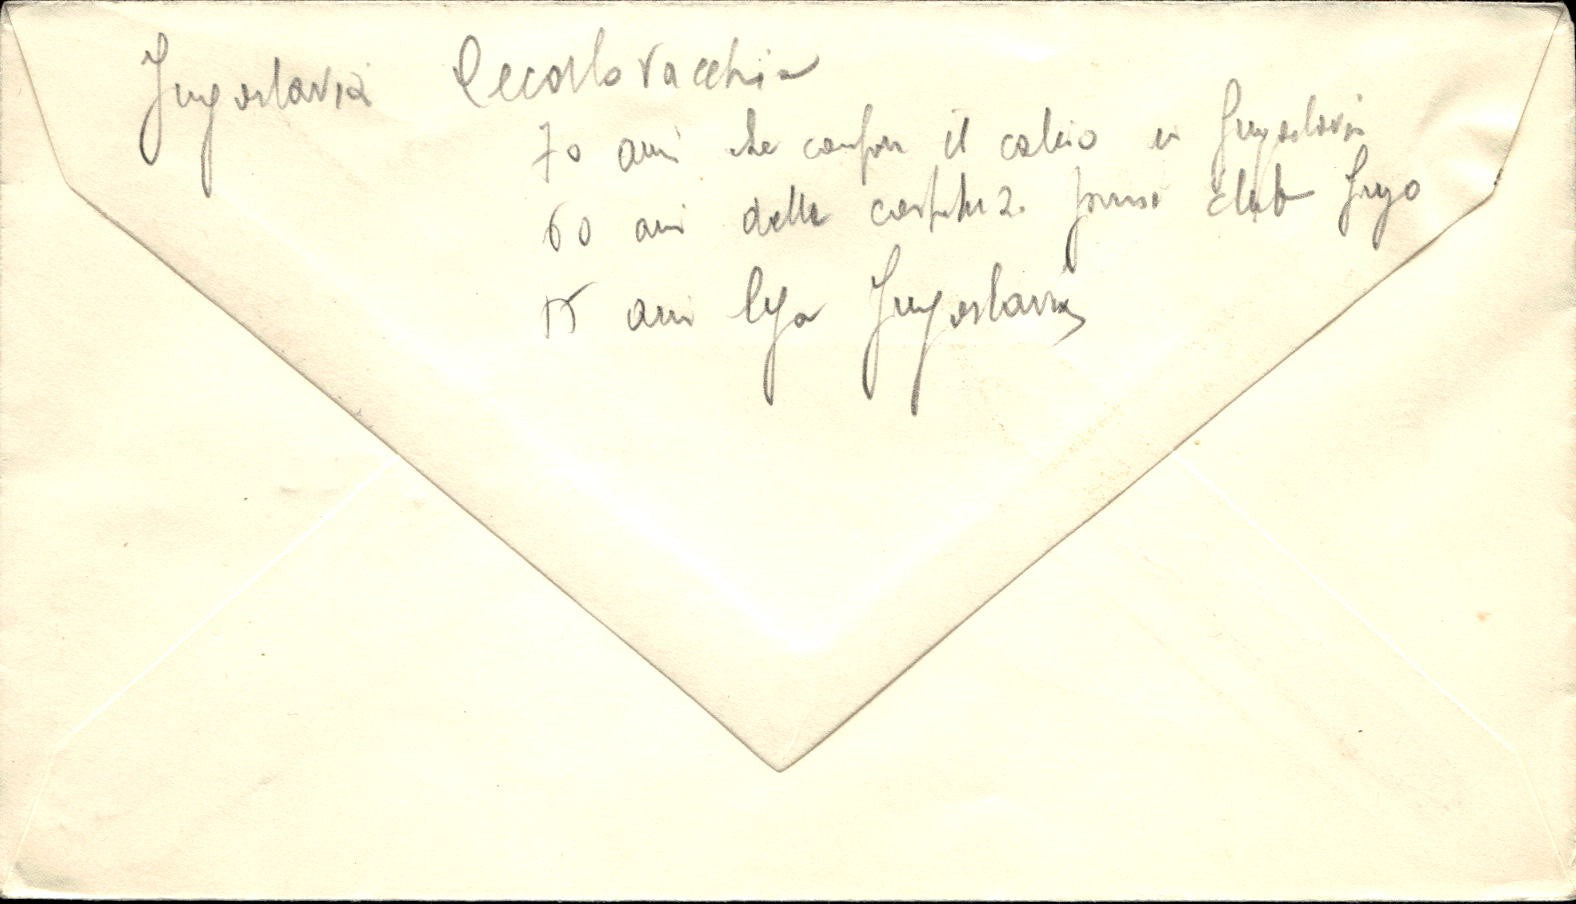 Jugoslavia Cecoslovacchia
70 anni che il calcio in Jugoslavia
60 anni della primo club Jugo
anni lega Jugoslavia